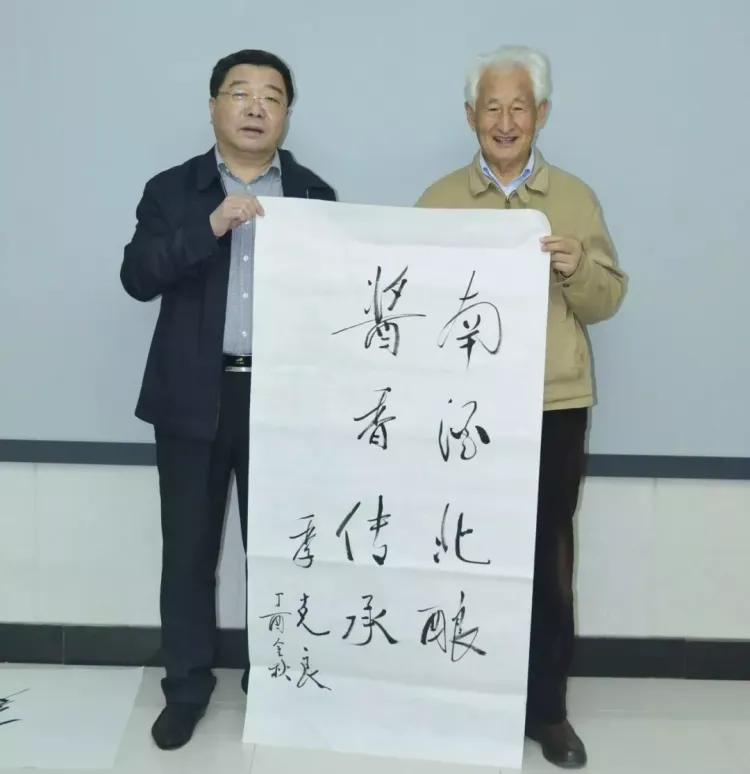 南酒北酿
酱香传承
季克良
丁酉金秋